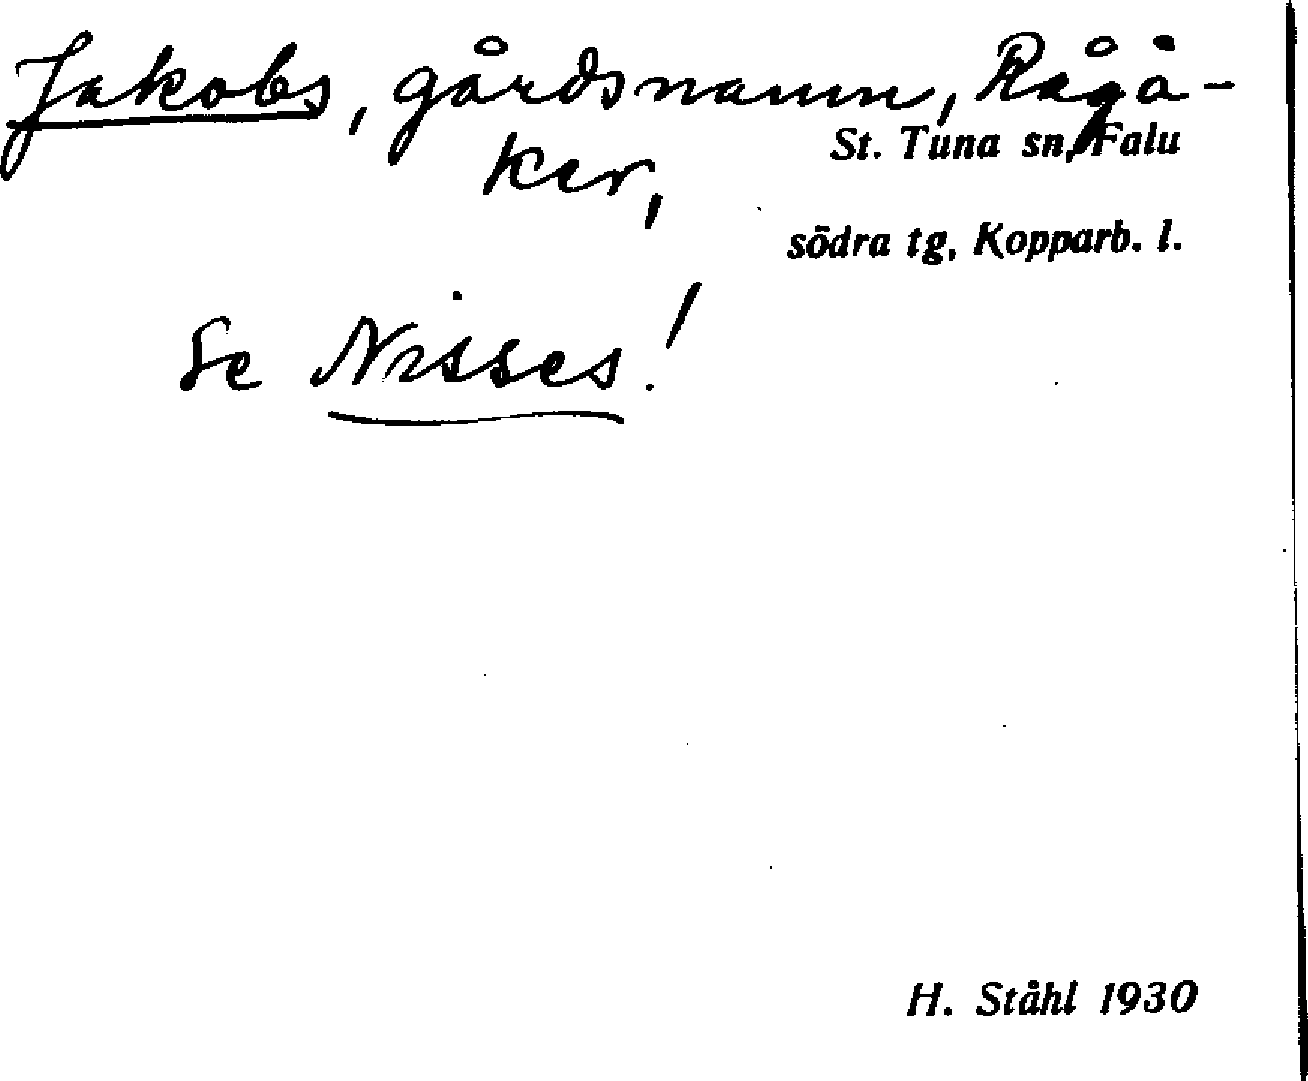 Jakobs, gårdsnamn, Rågå-
ker,
St. Tuna sn, Falu
södra tg, Kopparb. l.
Se Nisses!
H. Ståhl 1930